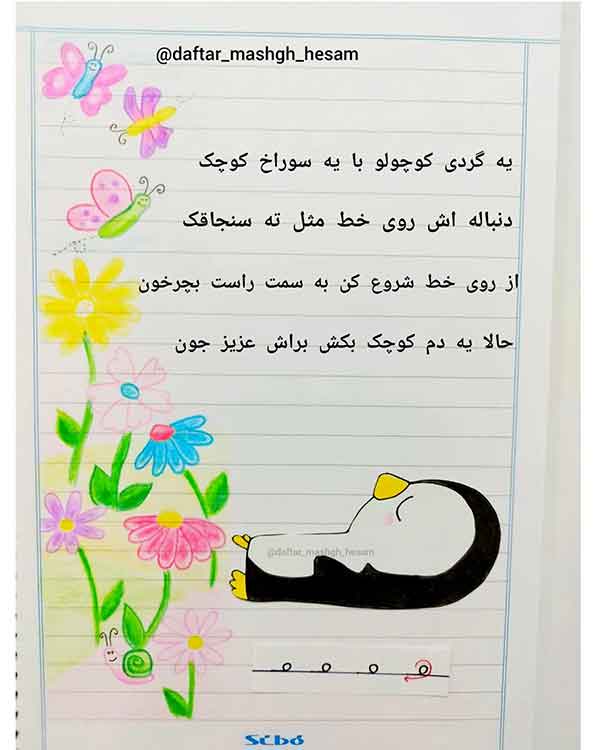 @daftar_mashgh_hesam
یه گردی کوچولو با یه سوراخ کوچک
دنباله اش روی خط مثل ته سنجاقک
از روی خط شروع کن به سمت راست بچرخون
حالا یه دم کوچک بکش براش عزیز جون
@daftar_mashgh_hesam